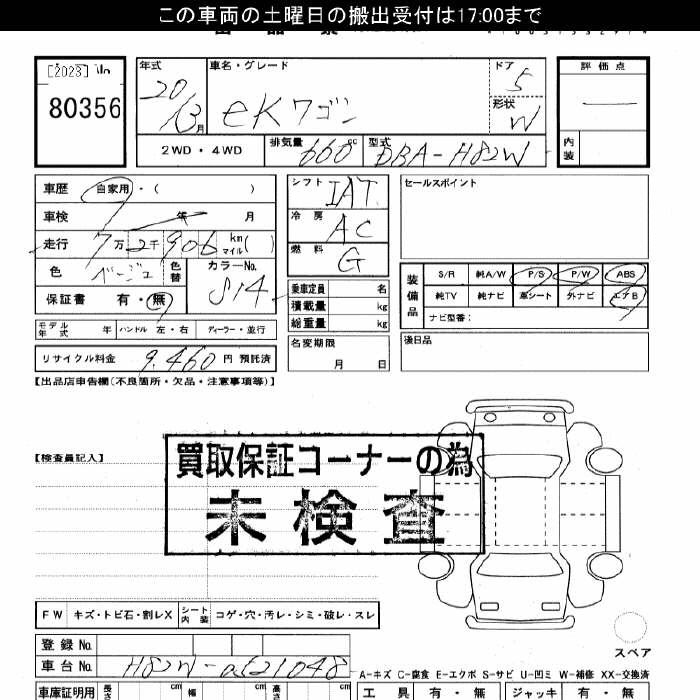 この車両の土曜日の搬出受付は17:00まで
[2023] No
80356
年式 車名・グレード ドア 評価点
20 / 3月 eKワゴン 5
形状 W
2WD・4WD 排気量 660cc 型式 DBA-H82W 内装
車歴 自家用・( )
シフト IAT
セールスポイント
車検 年 月
冷房 AC
走行 7万2千906 km マイル( )
燃料 G
色 ベージュ 色替 カラーNo. S14
装備品 S/R 純A/W P/S P/W ABS
乗車定員 名
純TV 純ナビ 革シート 外ナビ エアB
保証書 有・無
積載量 kg
ナビ型番:
総重量 kg
モデル年式 年 ハンドル 左・右 ディーラー・並行
名変期限 月 日
後日品
リサイクル料金 9,460円 預託済
【出品店申告欄(不良箇所・欠品・注意事項等)】
【検査員記入】
買取保証コーナーの為
未検査
FW キズ・トビ石・割レX シート内装 コゲ・穴・汚レ・シミ・破レ・スレ
スペア
登録No.
車台No. H82W-
A-キズ C-腐食 E-エクボ S-サビ U-凹ミ W-補修 XX-交換済
車庫証明用 長さ cm 幅 cm 高さ cm 工具 有・無 ジャッキ 有・無